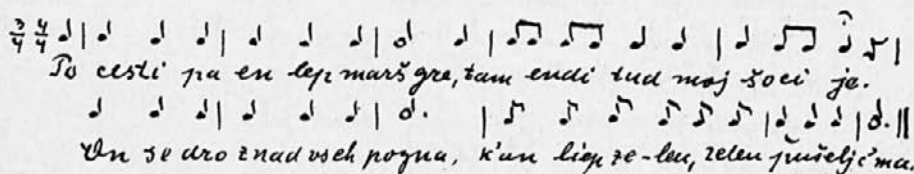 3/4 4/4
Po cesti pa en lep marš gre, tam endi tud moj šoci je.
On se dro znad vseh pogna, k'an liep ze-len, zelen pušeljc ma.